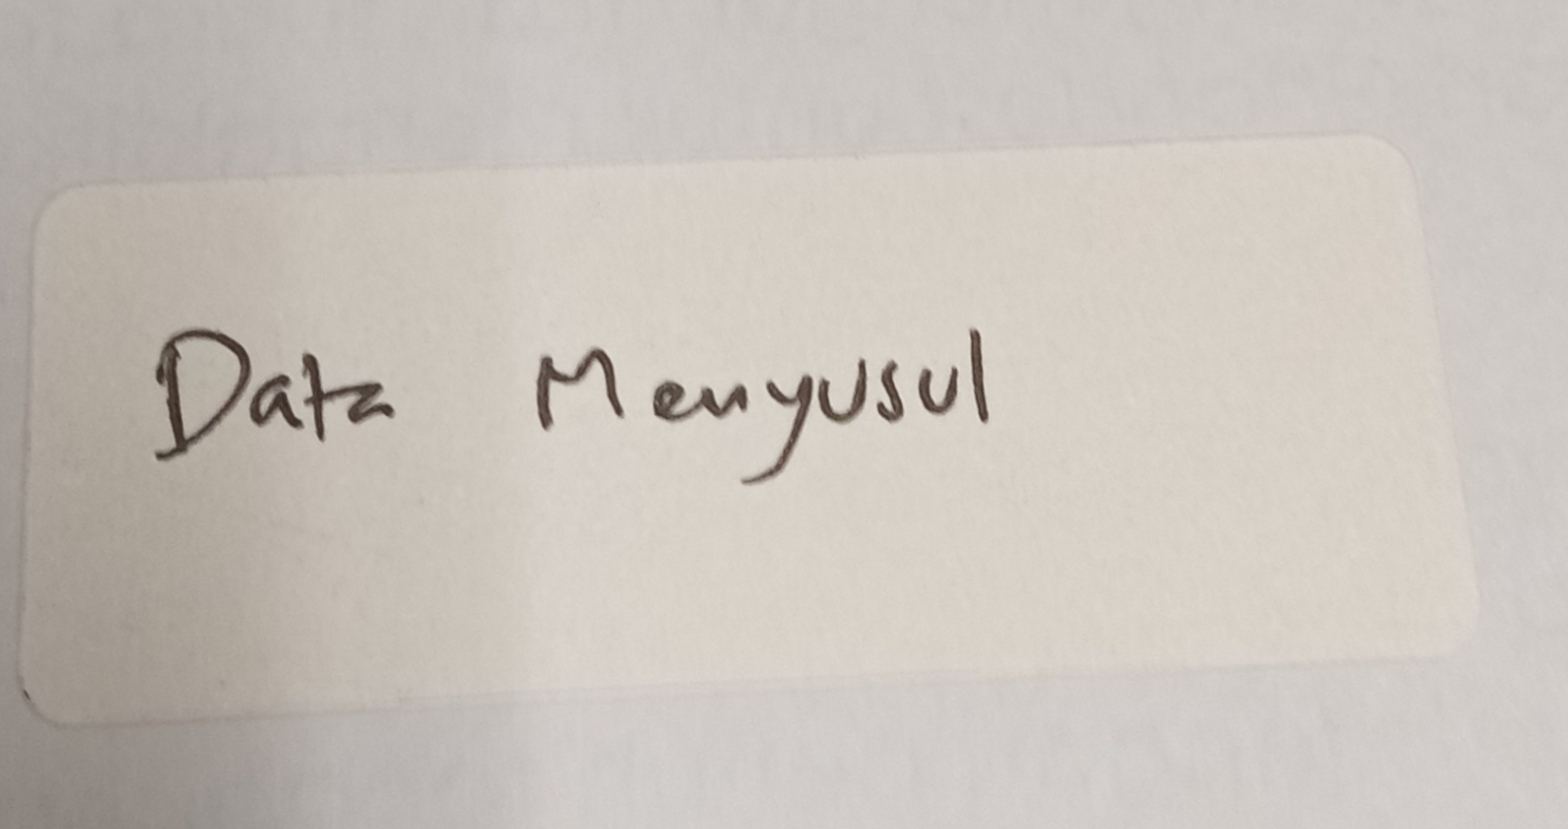 Data Menyusul